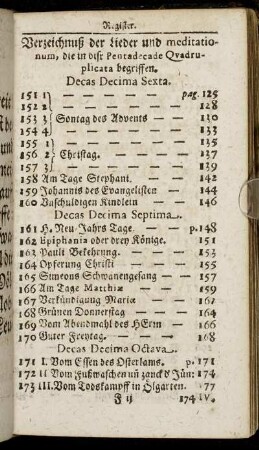 Register.
Verzeichnuß der Lieder und meditatio-
num, die in diser Pentadecade Qvadru-
plicata begriffen.
Decas Decima Sexta.
151 1 — — — — — pag. 125
152 2 — — — — — 128
153 3 Sontag des Advents — — 130
154 4 — — — — — 133
155 1 — — — — — 135
156 2 Christag. — — — — 137
157 3 — — — — — 139
158 Am Tage Stephani. — — — 142
159 Johannis des Evangelisten — — 144
160 Unschuldigen Kindlein — — 146
Decas Decima Septima.
161 H. Neu-Jahrs Tage. — — p. 148
162 Epiphania oder drey Könige. 151
163 Pauli Bekehrung. — — 153
164 Opferung Christi — — 155
165 Simeons Schwanengesang — 157
166 Am Tage Matthiæ — — 159
167 Verkündigung Mariæ — — 162
168 Grünen Donnerstag — — 164
169 Vom Abendmahl des HErrn — 166
170 Guter Freytag. — — — 168
Decas Decima Octava.
171 I. Vom Essen des Osterlams. p. 171
172 II Vom Fußwaschen uñ zanck d' Jün:
173 III. Vom Todskampff in Ölgarten.
F ij 174 IV.